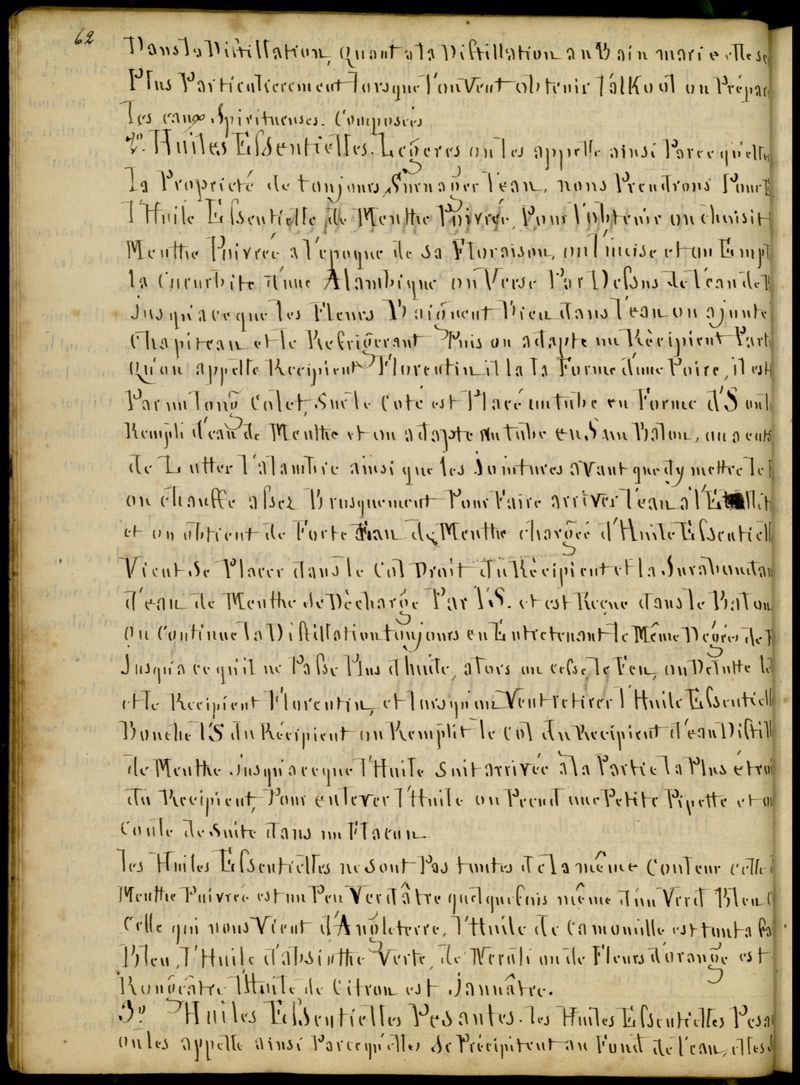 62
Dans la Distillation, Quant a la Distillation au Bain marie elle se
Plus Particulierement lorsque l'on Veut obtenir l'alkool ou Prépar
les eaux Spiritueuses. Composées
2º Huiles Essentielles. Legeres on les appelle ainsi Parce qu'elles
la Propriété de toujours, Surnager l'eau, nous Prendrons Pour E
l'Huile Essentielle de Menthe Poivrée, Pour l'obtenir on choisit
Menthe Poivrée a l'epoque de sa Floraison, on l'incise et on Empl
la Cucurbite d'une Alambique on Verse Par Dessus de l'eau de
Jusqu'a ce que les Fleurs Baignent Bien dans l'eau on ajoute
Chapiteau et le Refrigerant Puis on adapte un Rècipient Parti
Qu'on appelle Recipient Florentin il la la Forme d'une Poire, il est
Par un long Colet, Sur le Coté est Placé un tube en Forme d'S
Rempli d'eau de Menthe et on adapte un tube en S au Balon, on a
de Lutter l'alambic ainsi que les Jointures avant que d'y mettre le
on chauffe assez Brusquement Pour Faire arriver l'eau a l'
et on obtient de Forte Eau de Menthe chargée d'Huile Essentiell
Vient Se Placer dans le Col Droit du Rècipient et la Surabondan
d'eau de Menthe de Dècharge Par l'S. et est Reçue dans le Balon
on Continue la Distillation toujours en Entretenant le Même Degré de
Jusqu'a ce qu'il ne Passe Plus d'huile, alors on cesse le Feu, on Delutte le
et le Recipient Florentin, et lorsqu'on Veut retirer l'Huile Essentiell
Bouche l'S du Récipient on Remplit le Col du Recipient d'eau Distill
de Menthe Jusqu'a ceque l'Huile Soit arrivée a la Partie la Plus étroi
du Recipient, Pour enlever l'Huile on Prend une Petite Pipette et on
Coule de Suite dans un Flacon.
les Huiles Essentielles ne sont Pas toutes de la même Couleur celle
Menthe Poivrée est un Peu Verdâtre quelquefois même d'un Verd Bleu
Celle qui nous Vient d'Angleterre, l'Huile de Camomille est tout a fa
Bleu, l'Huile d'absinthe Verte, de Neroli ou de Fleurs d'orange est
Rougeâtre l'Huile de Citron est Jaunâtre.
3º Huiles Essentielles Pesantes. les Huiles Essentielles Pesa
on les appelle ainsi Parcequ'elles se Précipitent au Fond de l'eau, elles